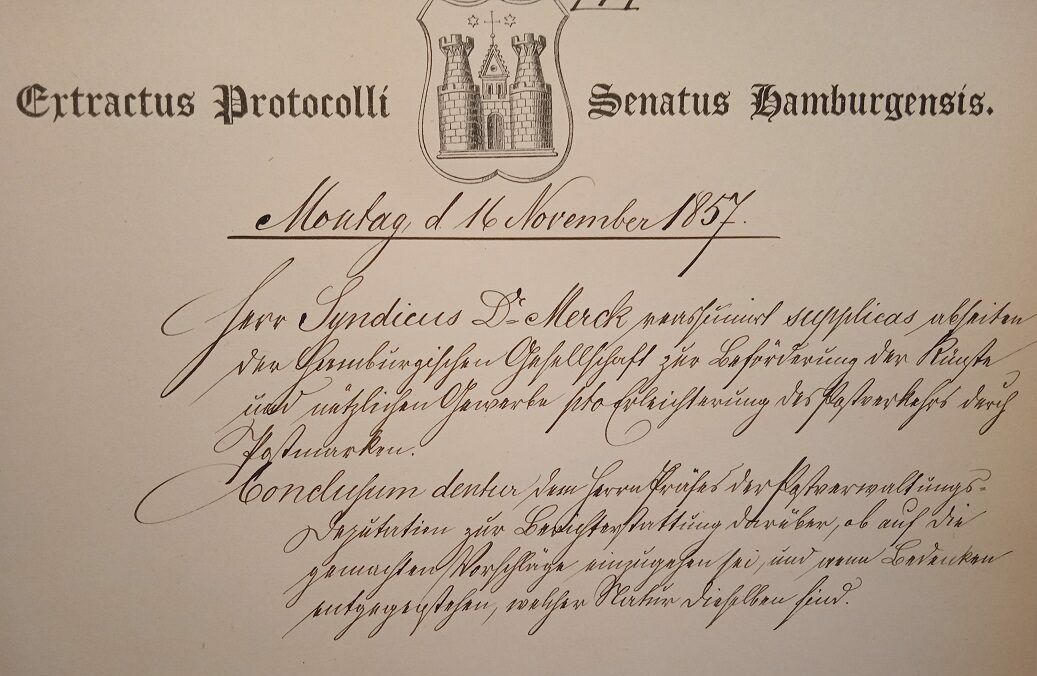 Extractus Protocolli Senatus Hamburgensis.
Montag, d 16 November 1857.
Herr Syndicus Dr. Merck reassumirt supplicas abseiten
der Hamburgischen Gesellschaft zur Beförderung der Künste
und nützlichen Gewerbe pto Erleichterung des Postverkehrs durch
Postmarken.
Conclusum dentur dem Herrn Präses der Postverwaltungs-
Deputation zur Berichterstattung darüber, ob auf die
gemachten Vorschläge einzugehen sei, und wenn Bedenken
entgegenstehen, welcher Natur dieselben sind.